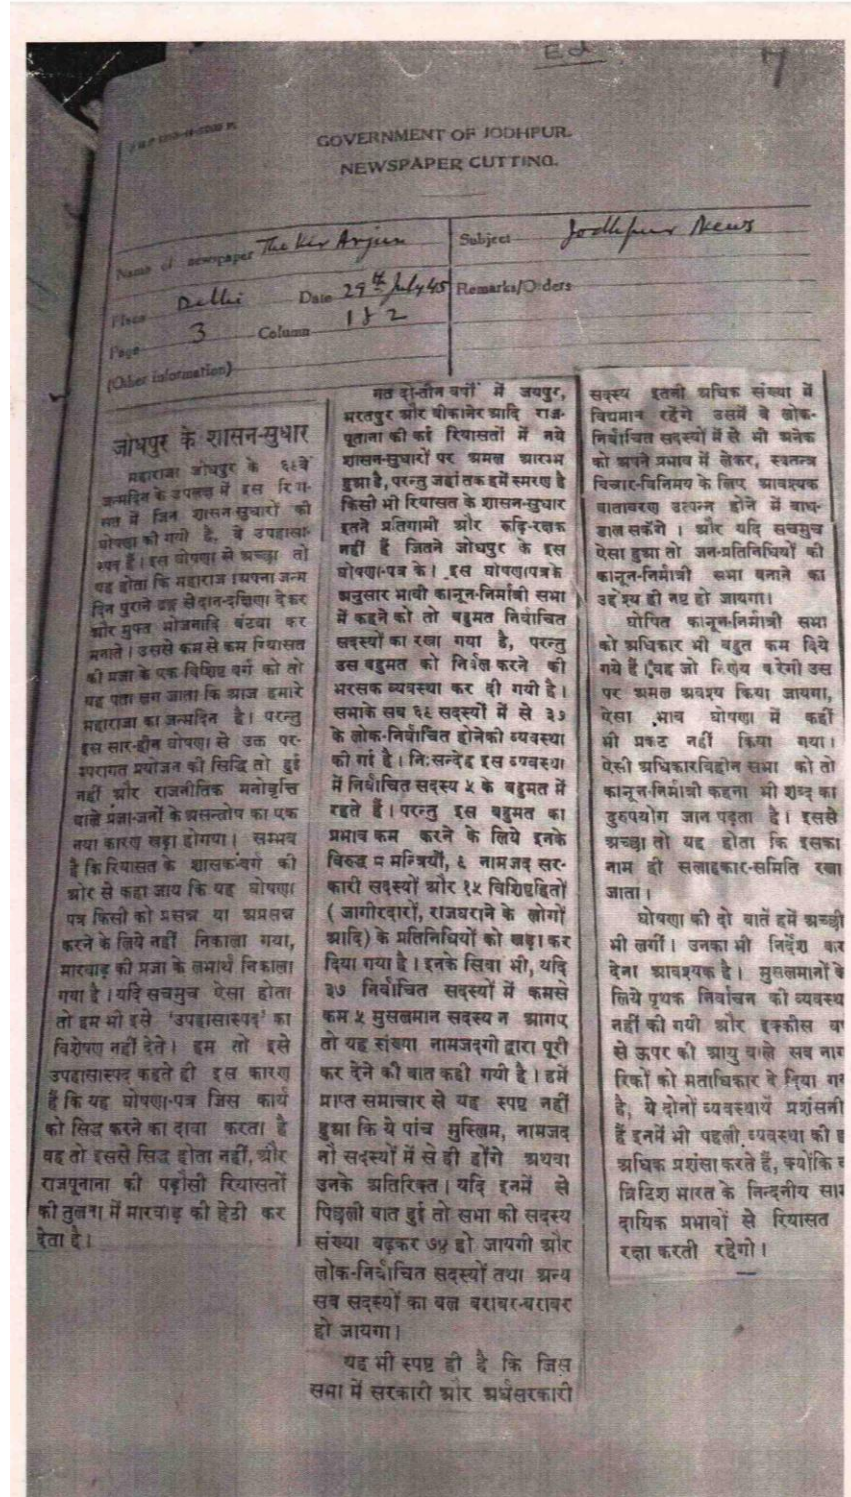 Ed
7
GOVERNMENT OF JODHPUR.
NEWSPAPER CUTTING.
Name of newspaper The Vir Arjun
Subject Jodhpur News
Place Delhi Date 29th July 45
Remarks/Orders
Page 3 Column 1 & 2
(Other information)
जोधपुर के शासन-सुधार
महाराजा जोधपुर के
जन्मदिन के उपलक्ष में इस रिया-
सत में जिन शासन-सुधारों की
घोषणा की गयी है, वे उपहासा-
स्पद हैं। इस घोषणा से अच्छा तो
यह होता कि महाराजा अपना जन्म
दिन पुराने ढङ्ग से दान-दक्षिणा देकर
और मुफ्त भोजनादि बंटवा कर
मनाते। उससे कम से कम रियासत
की प्रजा के एक विशिष्ट वर्ग को तो
यह पता लग जाता कि आज हमारे
महाराजा का जन्मदिन है। परन्तु
इस सार-हीन घोषणा से उक्त पर-
म्परागत प्रयोजन की सिद्धि तो हुई
नहीं और राजनीतिक मनोवृत्ति
वाले प्रजा-जनों के असन्तोष का एक
नया कारण खड़ा होगया। सम्भव
है कि रियासत के शासक-वर्ग की
ओर से कहा जाय कि यह घोषणा
पत्र किसी को प्रसन्न या अप्रसन्न
करने के लिये नहीं निकाला गया,
मारवाड़ की प्रजा के लाभार्थ निकाला
गया है। यदि सचमुच ऐसा होता
तो हम भी इसे 'उपहासास्पद' का
विशेषण नहीं देते। हम तो इसे
उपहासास्पद कहते ही इस कारण
हैं कि यह घोषणा-पत्र जिस कार्य
को सिद्ध करने का दावा करता है
वह तो इससे सिद्ध होता नहीं, और
राजपूताना की पड़ौसी रियासतों
की तुलना में मारवाड़ की हेठी कर
देता है।
गत दो-तीन वर्षों में जयपुर,
भरतपुर और बीकानेर आदि राज-
पूताना की कई रियासतों में नये
शासन-सुधारों पर अमल आरम्भ
हुआ है, परन्तु जहां तक हमें स्मरण है
किसी भी रियासत के शासन-सुधार
इतने प्रतिगामी और रूढ़ि-रक्षक
नहीं हैं जितने जोधपुर के इस
घोषणा-पत्र के। इस घोषणापत्रके
अनुसार भावी कानून-निर्मात्री सभा
में कहने को तो बहुमत निर्वाचित
सदस्यों का रखा गया है, परन्तु
उस बहुमत को निर्बल करने की
भरसक व्यवस्था कर दी गयी है।
सभाके सब ६९ सदस्यों में से ३७
के लोक-निर्वाचित होनेकी व्यवस्था
की गई है। निःसन्देह इस व्यवस्था
में निर्वाचित सदस्य ५ के बहुमत में
रहते हैं। परन्तु इस बहुमत का
प्रभाव कम करने के लिये इनके
विरुद्ध ८ मन्त्रियों, ९ नामजद सर-
कारी सदस्यों और १५ विशिष्टहितों
( जागीरदारों, राजघराने के लोगों
आदि) के प्रतिनिधियों को खड़ा कर
दिया गया है। इनके सिवा भी, यदि
३७ निर्वाचित सदस्यों में कमसे
कम ५ मुसलमान सदस्य न आगए
तो यह संख्या नामजदगी द्वारा पूरी
कर देने की बात कही गयी है। हमें
प्राप्त समाचार से यह स्पष्ट नहीं
हुआ कि ये पांच मुस्लिम, नामजद
नौ सदस्यों में से ही होंगे अथवा
उनके अतिरिक्त। यदि इनमें से
पिछली बात हुई तो सभा की सदस्य
संख्या बढ़कर ७४ हो जायगी और
लोक-निर्वाचित सदस्यों तथा अन्य
सब सदस्यों का बल बराबर-बराबर
हो जायगा।
यह भी स्पष्ट ही है कि जिस
सभा में सरकारी और अर्धसरकारी
सदस्य इतनी अधिक संख्या में
विद्यमान रहेंगे उसमें वे लोक-
निर्वाचित सदस्यों में से भी अनेक
को अपने प्रभाव में लेकर, स्वतन्त्र
विचार-विनिमय के लिए आवश्यक
वातावरण उत्पन्न होने में बाधा
डाल सकेंगे। और यदि सचमुच
ऐसा हुआ तो जन-प्रतिनिधियों की
कानून-निर्मात्री सभा बनाने का
उद्देश्य ही नष्ट हो जायगा।
घोषित कानून-निर्मात्री सभा
को अधिकार भी बहुत कम दिये
गये हैं। वह जो निर्णय करेगी उस
पर अमल अवश्य किया जायगा,
ऐसा भाव घोषणा में कहीं
भी प्रकट नहीं किया गया।
ऐसी अधिकारविहीन सभा को तो
कानून-निर्मात्री कहना भी शब्द का
दुरुपयोग जान पड़ता है। इससे
अच्छा तो यह होता कि इसका
नाम ही सलाहकार-समिति रखा
जाता।
घोषणा की दो बातें हमें अच्छी
भी लगीं। उनका भी निर्देश कर
देना आवश्यक है। मुसलमानों के
लिये पृथक निर्वाचन की व्यवस्थ
नहीं की गयी और इक्कीस व
से ऊपर की आयु वाले सब नाग
रिकों को मताधिकार दे दिया गय
है; ये दोनों व्यवस्थायें प्रशंसनी
हैं इनमें भी पहली व्यवस्था की ह
अधिक प्रशंसा करते हैं, क्योंकि व
ब्रिटिश भारत के निन्दनीय साम
दायिक प्रभावों से रियासत
रक्षा करती रहेगी।